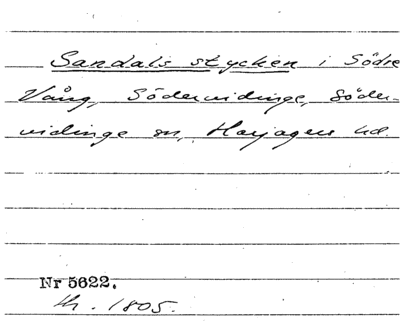 Sandals stycken i Södre
Vång, Södervidinge, Söder-
vidinge sn, Harjagers hd.
Nr 5622.
lh. 1805.